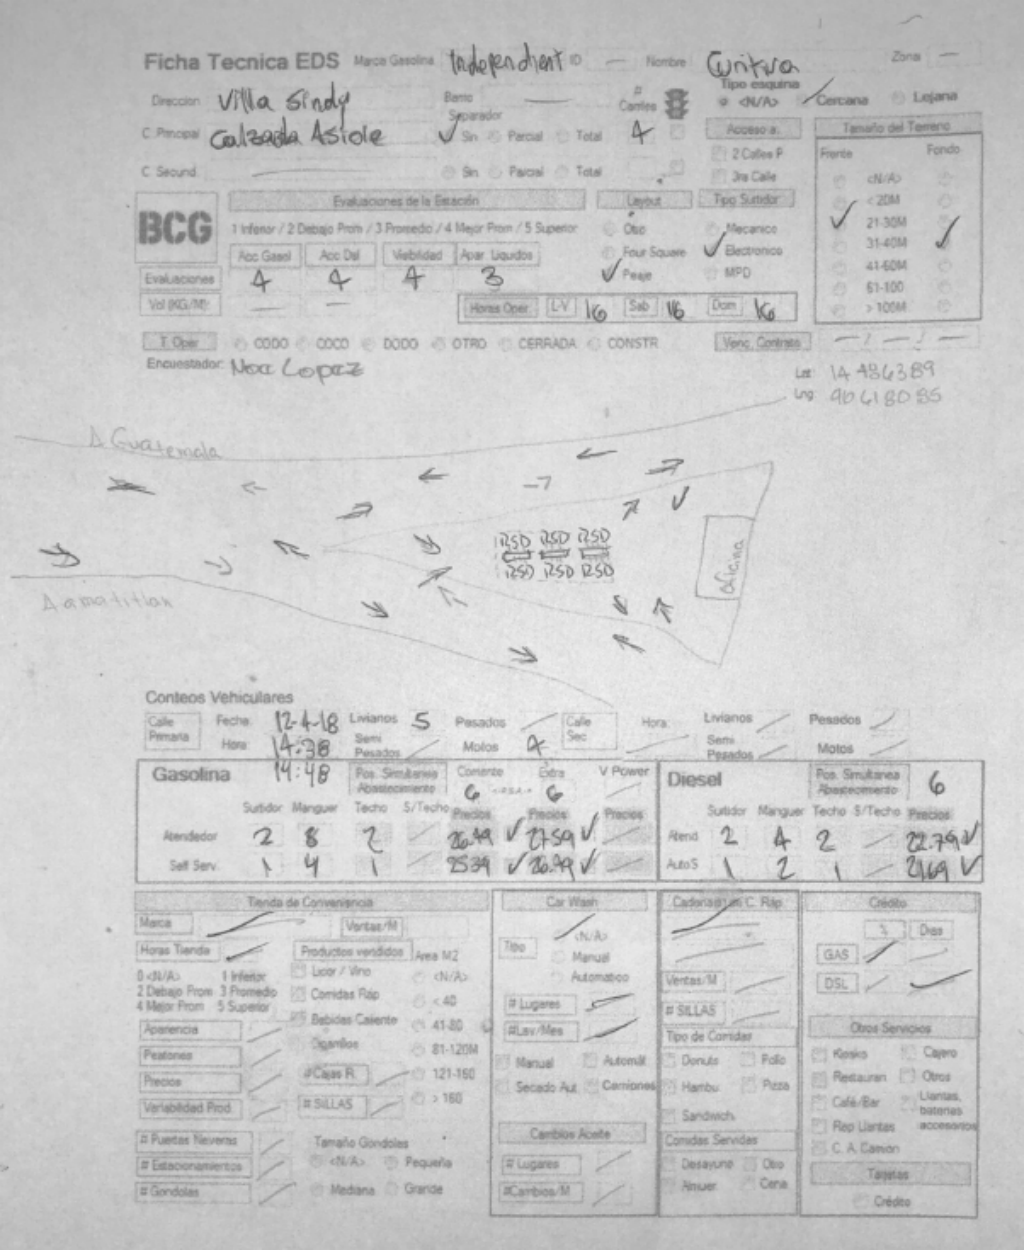 Ficha Tecnica EDS Marca Gasolina Independient ID — Nombre Curitiva Zona —
Direccion Villa Sindy Barrio — # Carriles Tipo esquina <N/A> Cercana Lejana
C. Principal Calzada Separador Sin Parcial Total 4 Acceso a: Tamaño del Terreno
2 Calles P Frente Fondo
C Secund. — Sin Parcial Total 3ra Calle <N/A>
BCG Evaluaciones de la Estación Layout Tipo Surtidor < 20M
1 Inferior / 2 Debajo Prom / 3 Promedio / 4 Mejor Prom / 5 Superior Otro Mecanico 21-30M
Acc Gasol Acc Dsl Visibilidad Apar. Liquidos Four Square Electronico 31-40M
Evaluaciones 4 4 4 3 Peaje MPD 41-60M
61-100
Vol (KG/M): — — Horas Oper. L-V 16 Sab 16 Dom 16 > 100M
T. Oper CODO COCO DODO OTRO CERRADA CONSTR Venc. Contrato — / — / —
Encuestador: Noe Lopez
Lat 14 486389
Lng 90 618085
A Guatemala
RSD RSD RSD
RSD RSD RSD
Oficina
A amatitlan
Conteos Vehiculares
Calle Primaria Fecha: 12-4-18 Livianos 5 Pesados Calle Sec Hora: Livianos Pesados
Hora: 14:38 Semi Pesados Motos 4 Semi Pesados Motos
14:48
Gasolina Pos. Simultanea Abastecimiento Corriente 6 Extra 6 V Power Diesel Pos. Simultanea Abastecimiento 6
Surtidor Manguer Techo S/Techo Precios Precios Precios Surtidor Manguer Techo S/Techo Precios
Atendedor 2 8 2 26.49 27.59 Atend 2 4 2 22.79
Self Serv. 1 4 1 25.39 26.49 Auto S 1 2 1 21.69
Tienda de Conveniencia Car Wash Credito
Marca Ventas/M <N/A> % Dias
Horas Tienda Productos vendidos Area M2 Tipo Manual GAS
0 <N/A> 1 Inferior Licor / Vino <N/A> Automatico
2 Debajo Prom 3 Promedio Comidas Rap < 40 Ventas/M DSL
4 Mejor Prom 5 Superior # Lugares
Apariencia Bebidas Caliente 41-80 #Lav/Mes # SILLAS Otros Servicios
Peatones Cigarrillos 81-120M Tipo de Comidas
Manual Automát Donuts Pollo Kiosko Cajero
Precios #Cajas R. 121-160 Secado Aut. Camiones Hambu. Pizza Restauran Otros
Variabilidad Prod. # SILLAS > 160 Sandwich Café/Bar Llantas, baterias accesorios
Rep Llantas
# Puertas Neveras Tamaño Gondolas Cambios Aceite Comidas Servidas C. A. Camion
# Estacionamientos <N/A> Pequeña # Lugares Desayuno Otro Tarjetas
# Gondolas Mediana Grande #Cambios/M Almuer. Cena Crédito